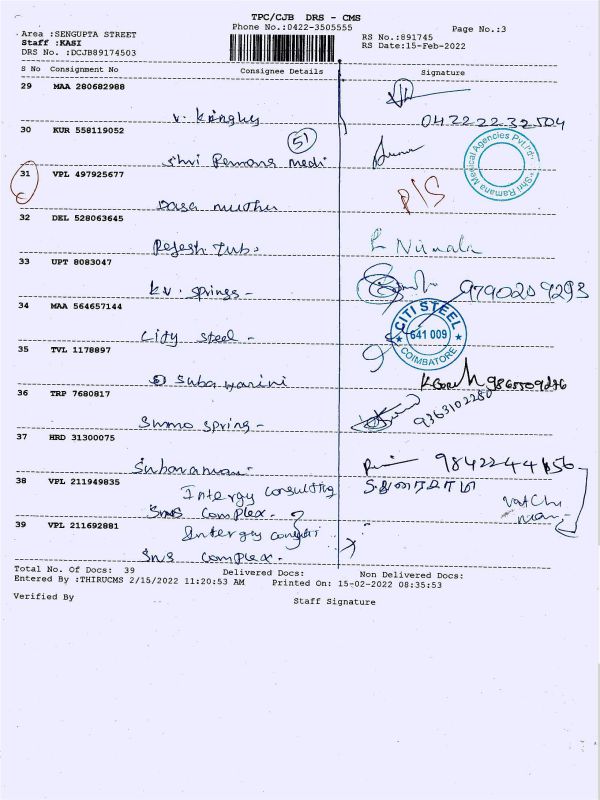 TPC/CJB DRS - CMS
Phone No.:0422-3505555
Page No.:3
Area :SENGUPTA STREET
Staff :KASI
DRS No. :DCJB89174503
RS No.:891745
RS Date:15-Feb-2022
S No Consignment No Consignee Details Signature
29 MAA 280682988
0422 2232504
30 KUR 558119052
51
Shri Ramana Medi
Shri Ramana Medical Agencies Pvt.Ltd
31 VPL 497925677
P/S
Dasa muthu
32 DEL 528063645
Rajesh Tub.
Nirmala
33 UPT 8083047
K.V. Springs -
9790209293
34 MAA 564657144
City Steel -
CITI STEEL
641 009
COIMBATORE
35 TVL 1178897
Suba
36 TRP 7680817
9363102280
Sumo Spring -
37 HRD 31300075
9842244656
38 VPL 211949835
Intergy Consulting
SNS Complex -
Watch
man
39 VPL 211692881
Intergy
SNS Complex -
Total No. Of Docs: 39 Delivered Docs: Non Delivered Docs:
Entered By :THIRUCMS 2/15/2022 11:20:53 AM Printed On: 15-02-2022 08:35:53
Verified By Staff Signature